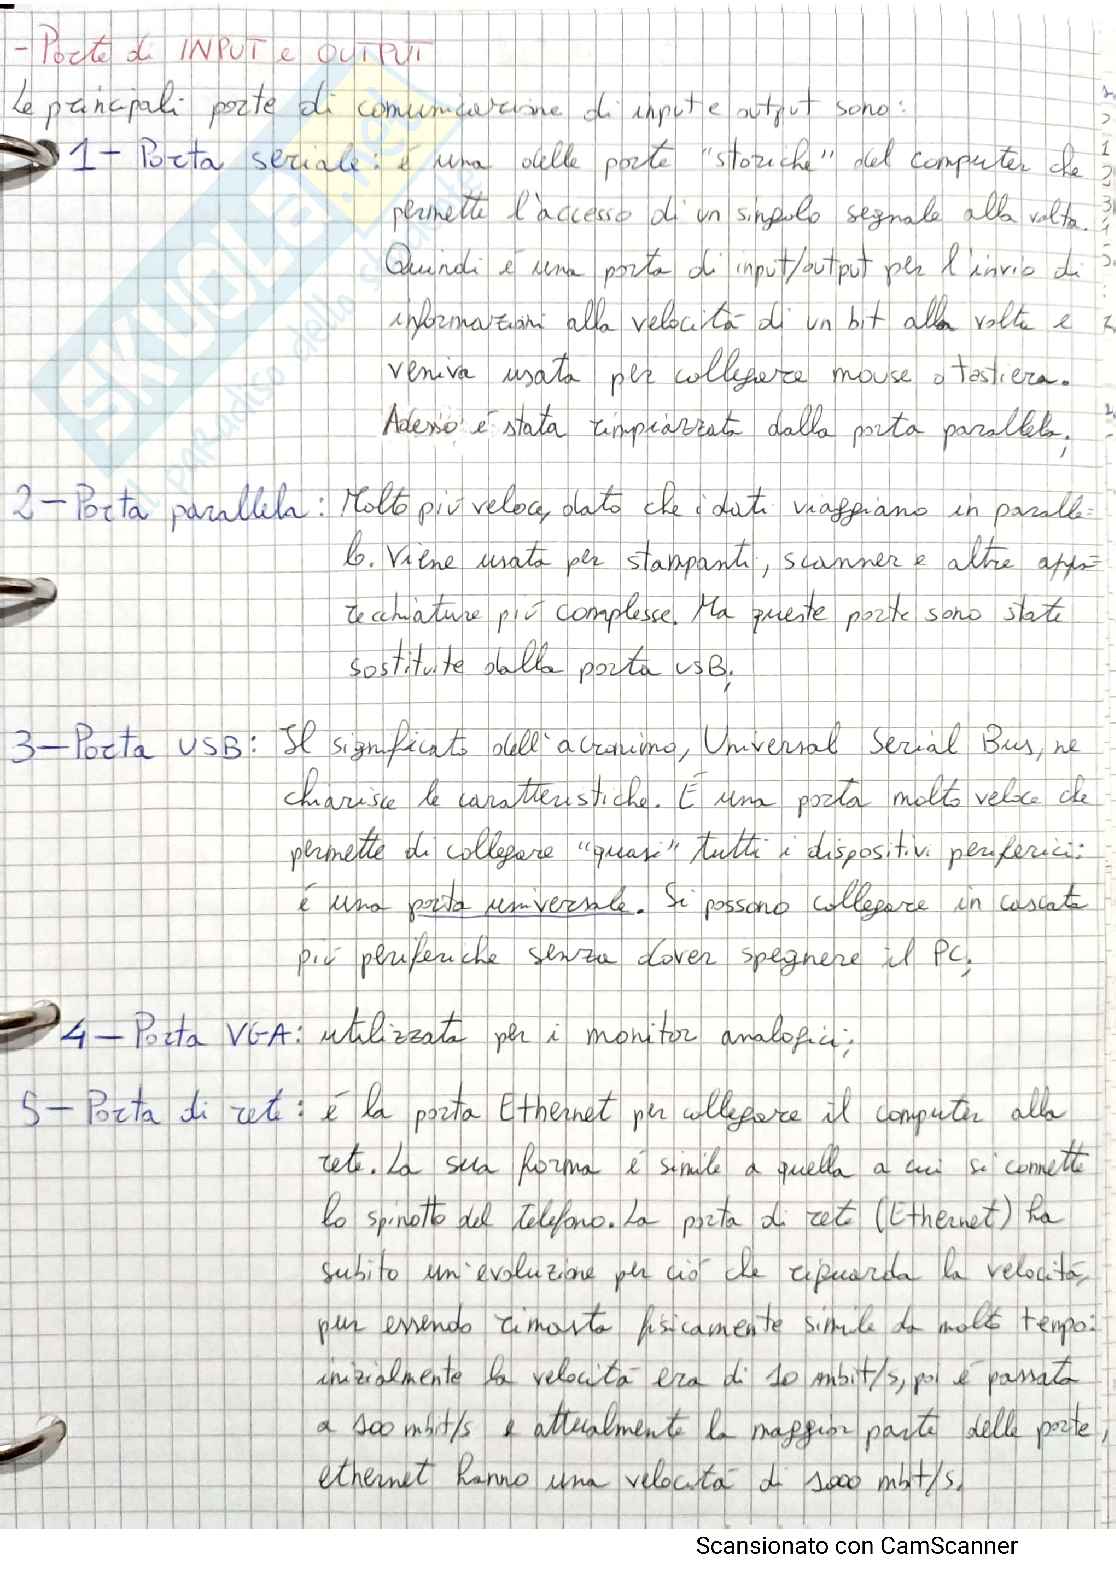 - Porte di INPUT e OUTPUT
Le principali porte di comunicazione di input e output sono:
1- Porta seriale: é una delle porte "storiche" del computer che
permette l'accesso di un singolo segnale alla volta.
Quindi é una porta di input/output per l'invio di
informazioni alla velocitá di un bit alla volta e
veniva usata per collegare mouse o tastiera.
Adesso é stata rimpiazzata dalla porta parallela;
2- Porta parallela: Molto piú veloce, dato che i dati viaggiano in paralle=
lo. Viene usata per stampanti, scanner e altre appa=
recchiature piú complesse. Ma queste porte sono state
sostituite dalla porta USB;
3- Porta USB: Il significato dell'acronimo, Universal Serial Bus, ne
chiarisce le caratteristiche. É una porta molto veloce che
permette di collegare "quasi" tutti i dispositivi periferici:
é una porta universale. Si possono collegare in cascata
piú periferiche senza dover spegnere il PC;
4- Porta VGA: utilizzata per i monitor analogici;
5- Porta di rete: é la porta Ethernet per collegare il computer alla
rete. La sua forma é simile a quella a cui si connette
lo spinotto del telefono. La porta di rete (Ethernet) ha
subito un'evoluzione per ció che riguarda la velocitá,
pur essendo rimasta fisicamente simile da molto tempo:
inizialmente la velocitá era di 10 mbit/s, poi é passata
a 100 mbit/s e attualmente la maggior parte delle porte
ethernet hanno una velocitá di 1000 mbit/s.
SKUOLA.net
il paradiso dello studente
Scansionato con CamScanner